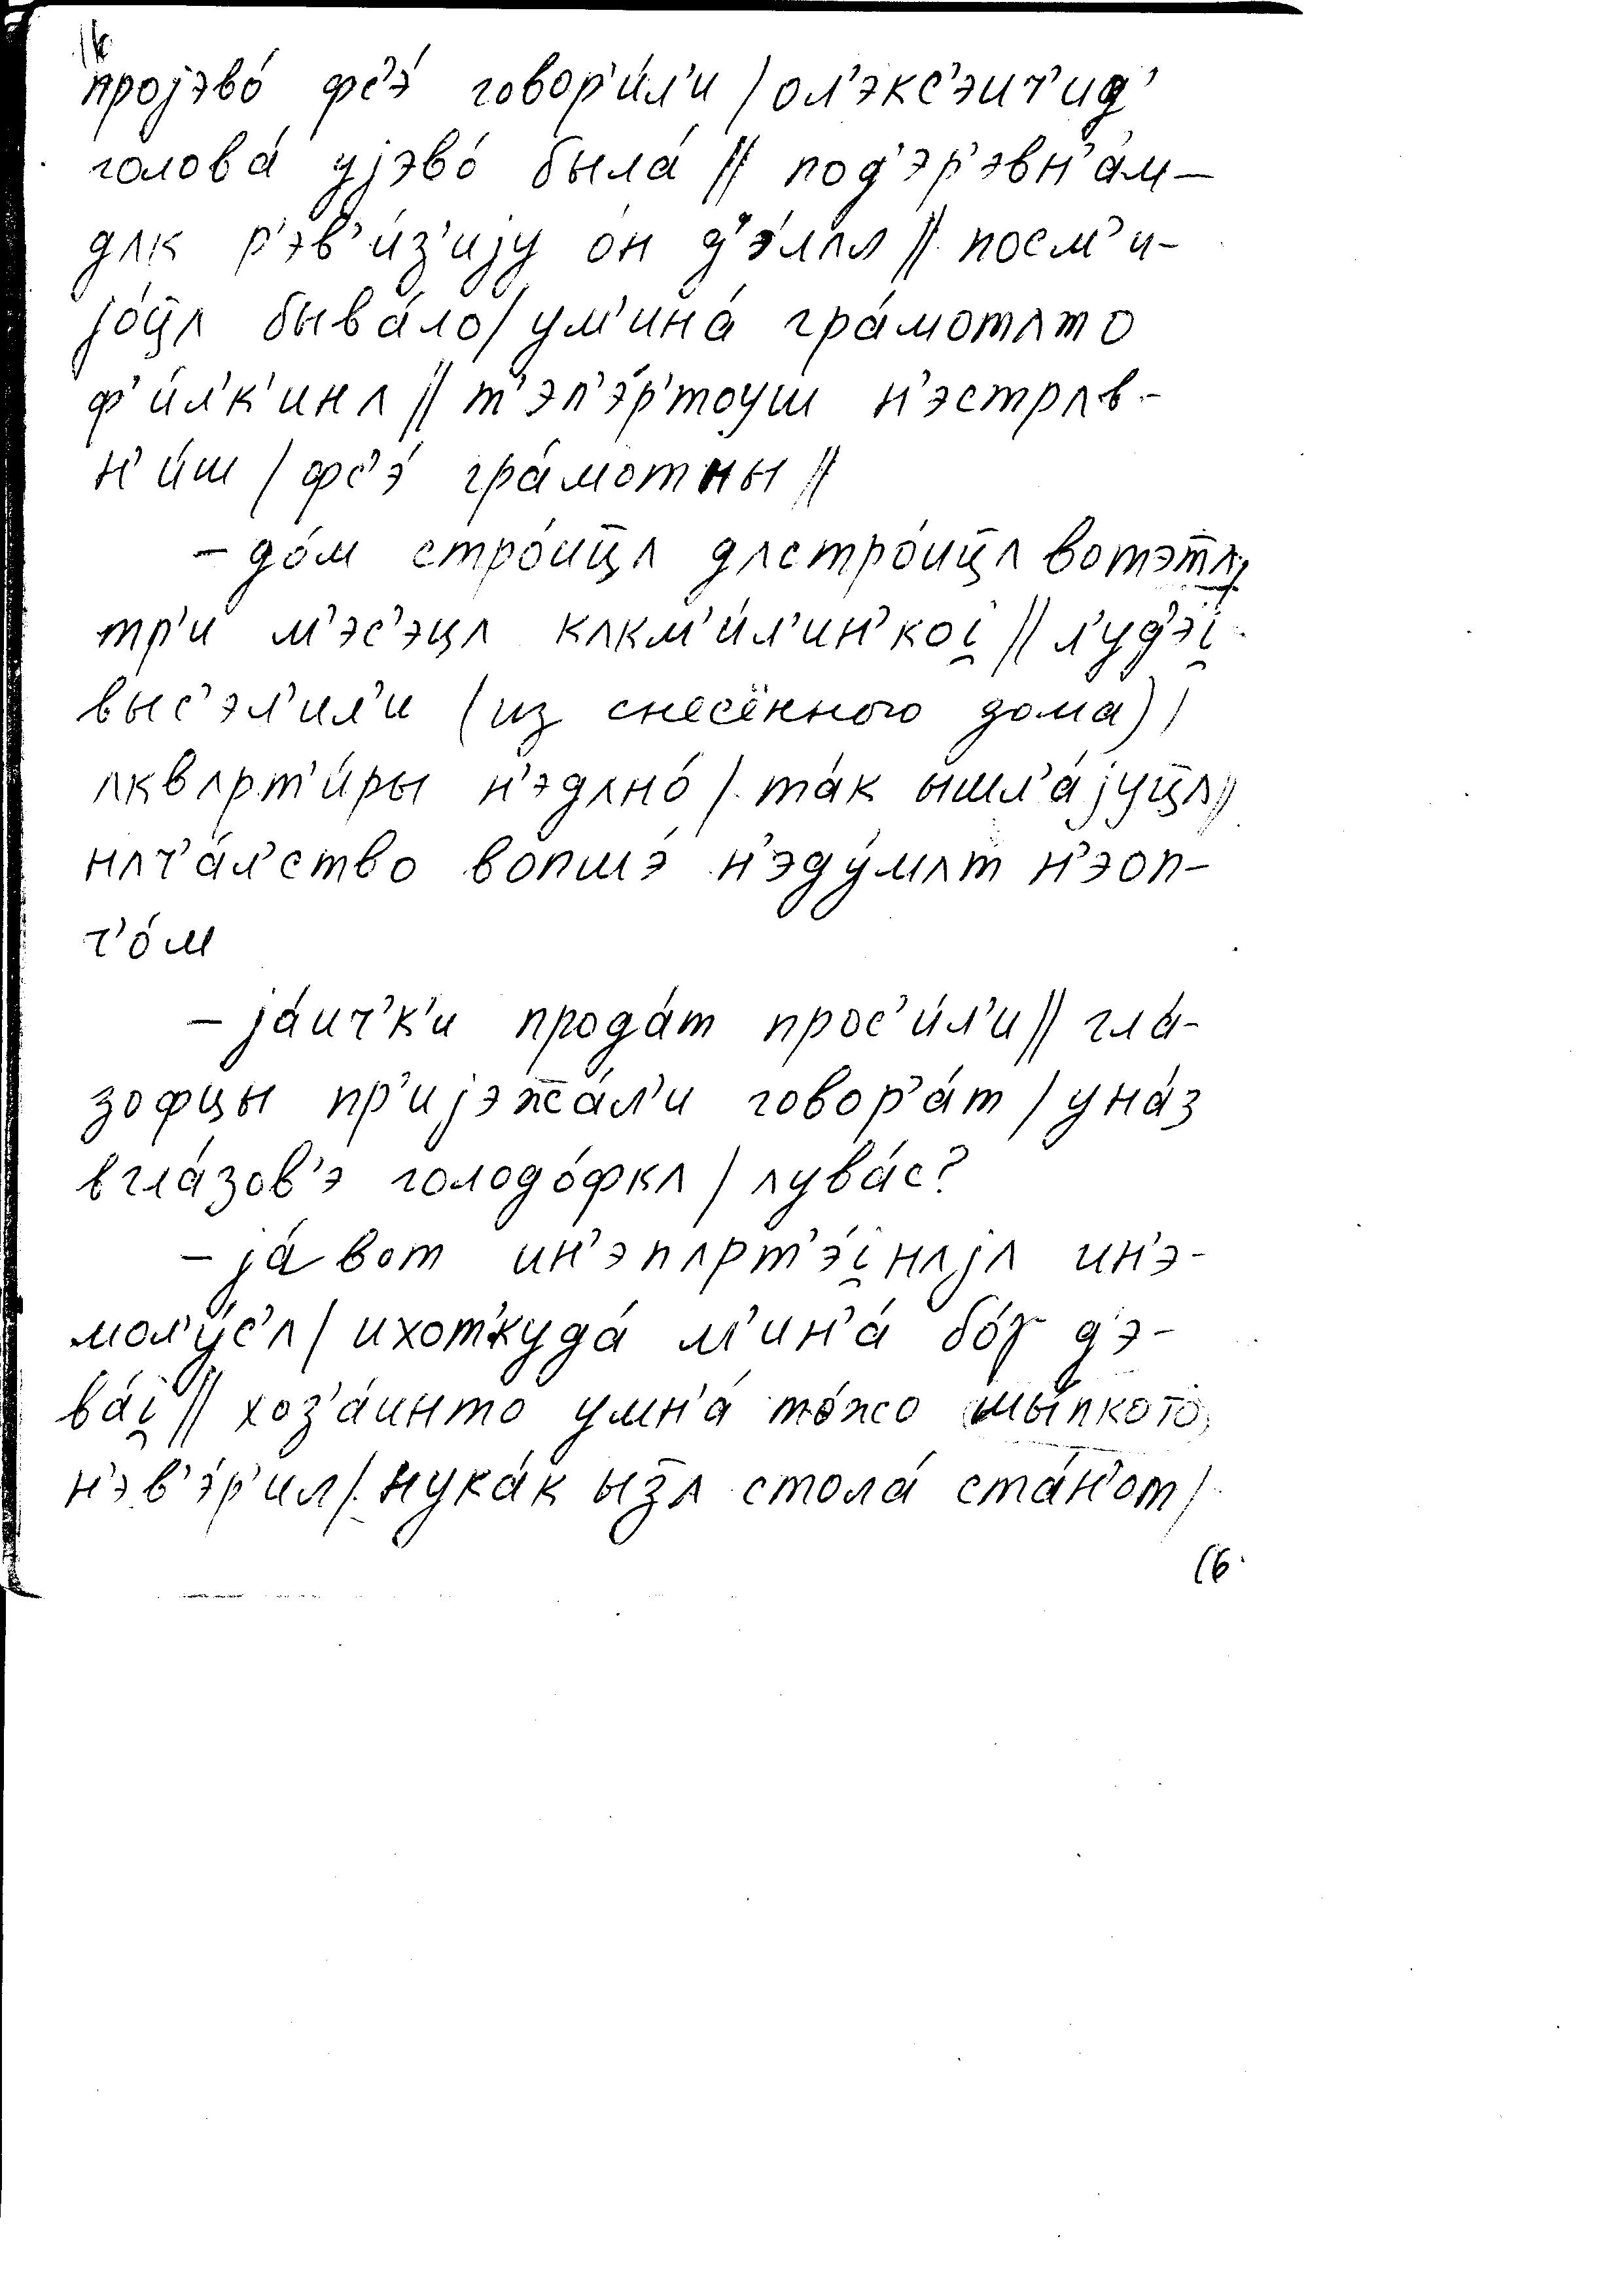 16
проjэво́ фс’э́ говор’и́л’и / ол’экс’эич’ид’
голова́ уjэво́ была́ // под’эр’эвн’а́м–
дʌк р’эв’и́з’иjу о́н д’э́лʌл // посм’и–
jо́ц̄ʌ быва́ло / ум’ина́ гра́мотʌто
ф’и́л’к’инʌ // т’эп’э́р’тоуш н’эстрʌв–
н’и́ш / фс’э́ гра́мотны //
– до́м стро́иц̄ʌ дʌстро́иц̄ʌ вотэ́тʌ /
тр’и м’э́с’эцʌ кʌкм’и́л’ин’коi̯ // л’уд’э́i̯
выс’эл’ил’и (из снесённого дома) /
ʌквʌрт’и́ры н’эдʌно́ / та́к ышл’а́jуц̄ʌ //
нʌч’а́л’ство вопшэ́ н’эду́мʌт н’эоп–
ч’о́м
– jа́ич’к’и прода́т прос’и́л’и // гла́–
зофцы пр’иjэж̄а́л’и говор’а́т / уна́з
вгла́зов’э голодо́фкʌ / ʌува́с?
– jа́ вот ин’эпʌрт’э́i̯нʌjʌ ин’э–
мол’у́с’ʌ / ихот’куда́ м’ин’а́ бо́γ д’э–
ва́i̯ // хоз’а́инто умн’а́ то́жо шы́пкото
н’эв’э́р’ил / нука́к ыз̄ʌ стола́ ста́н’от /
16